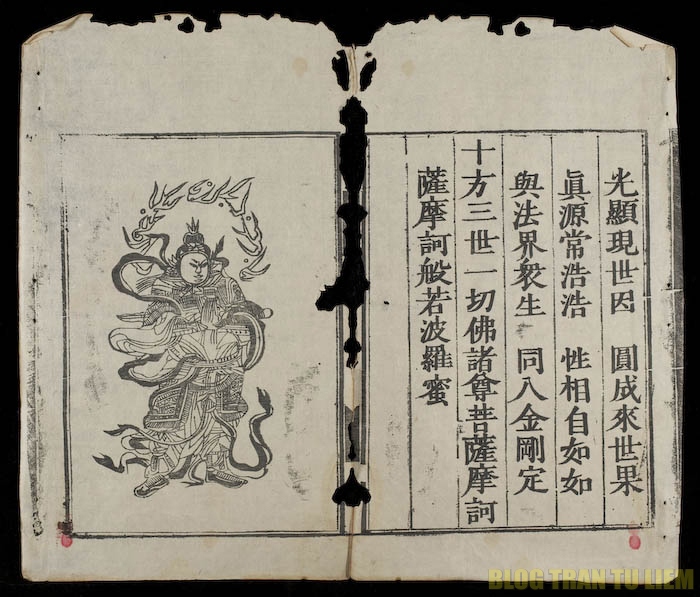 光顯現世因 圓成來世果
眞源常浩浩 性相自如如
與法界衆生 同入金剛定
十方三世一切佛諸尊菩薩摩訶
薩摩訶般若波羅蜜
BLOG TRAN TU LIEM